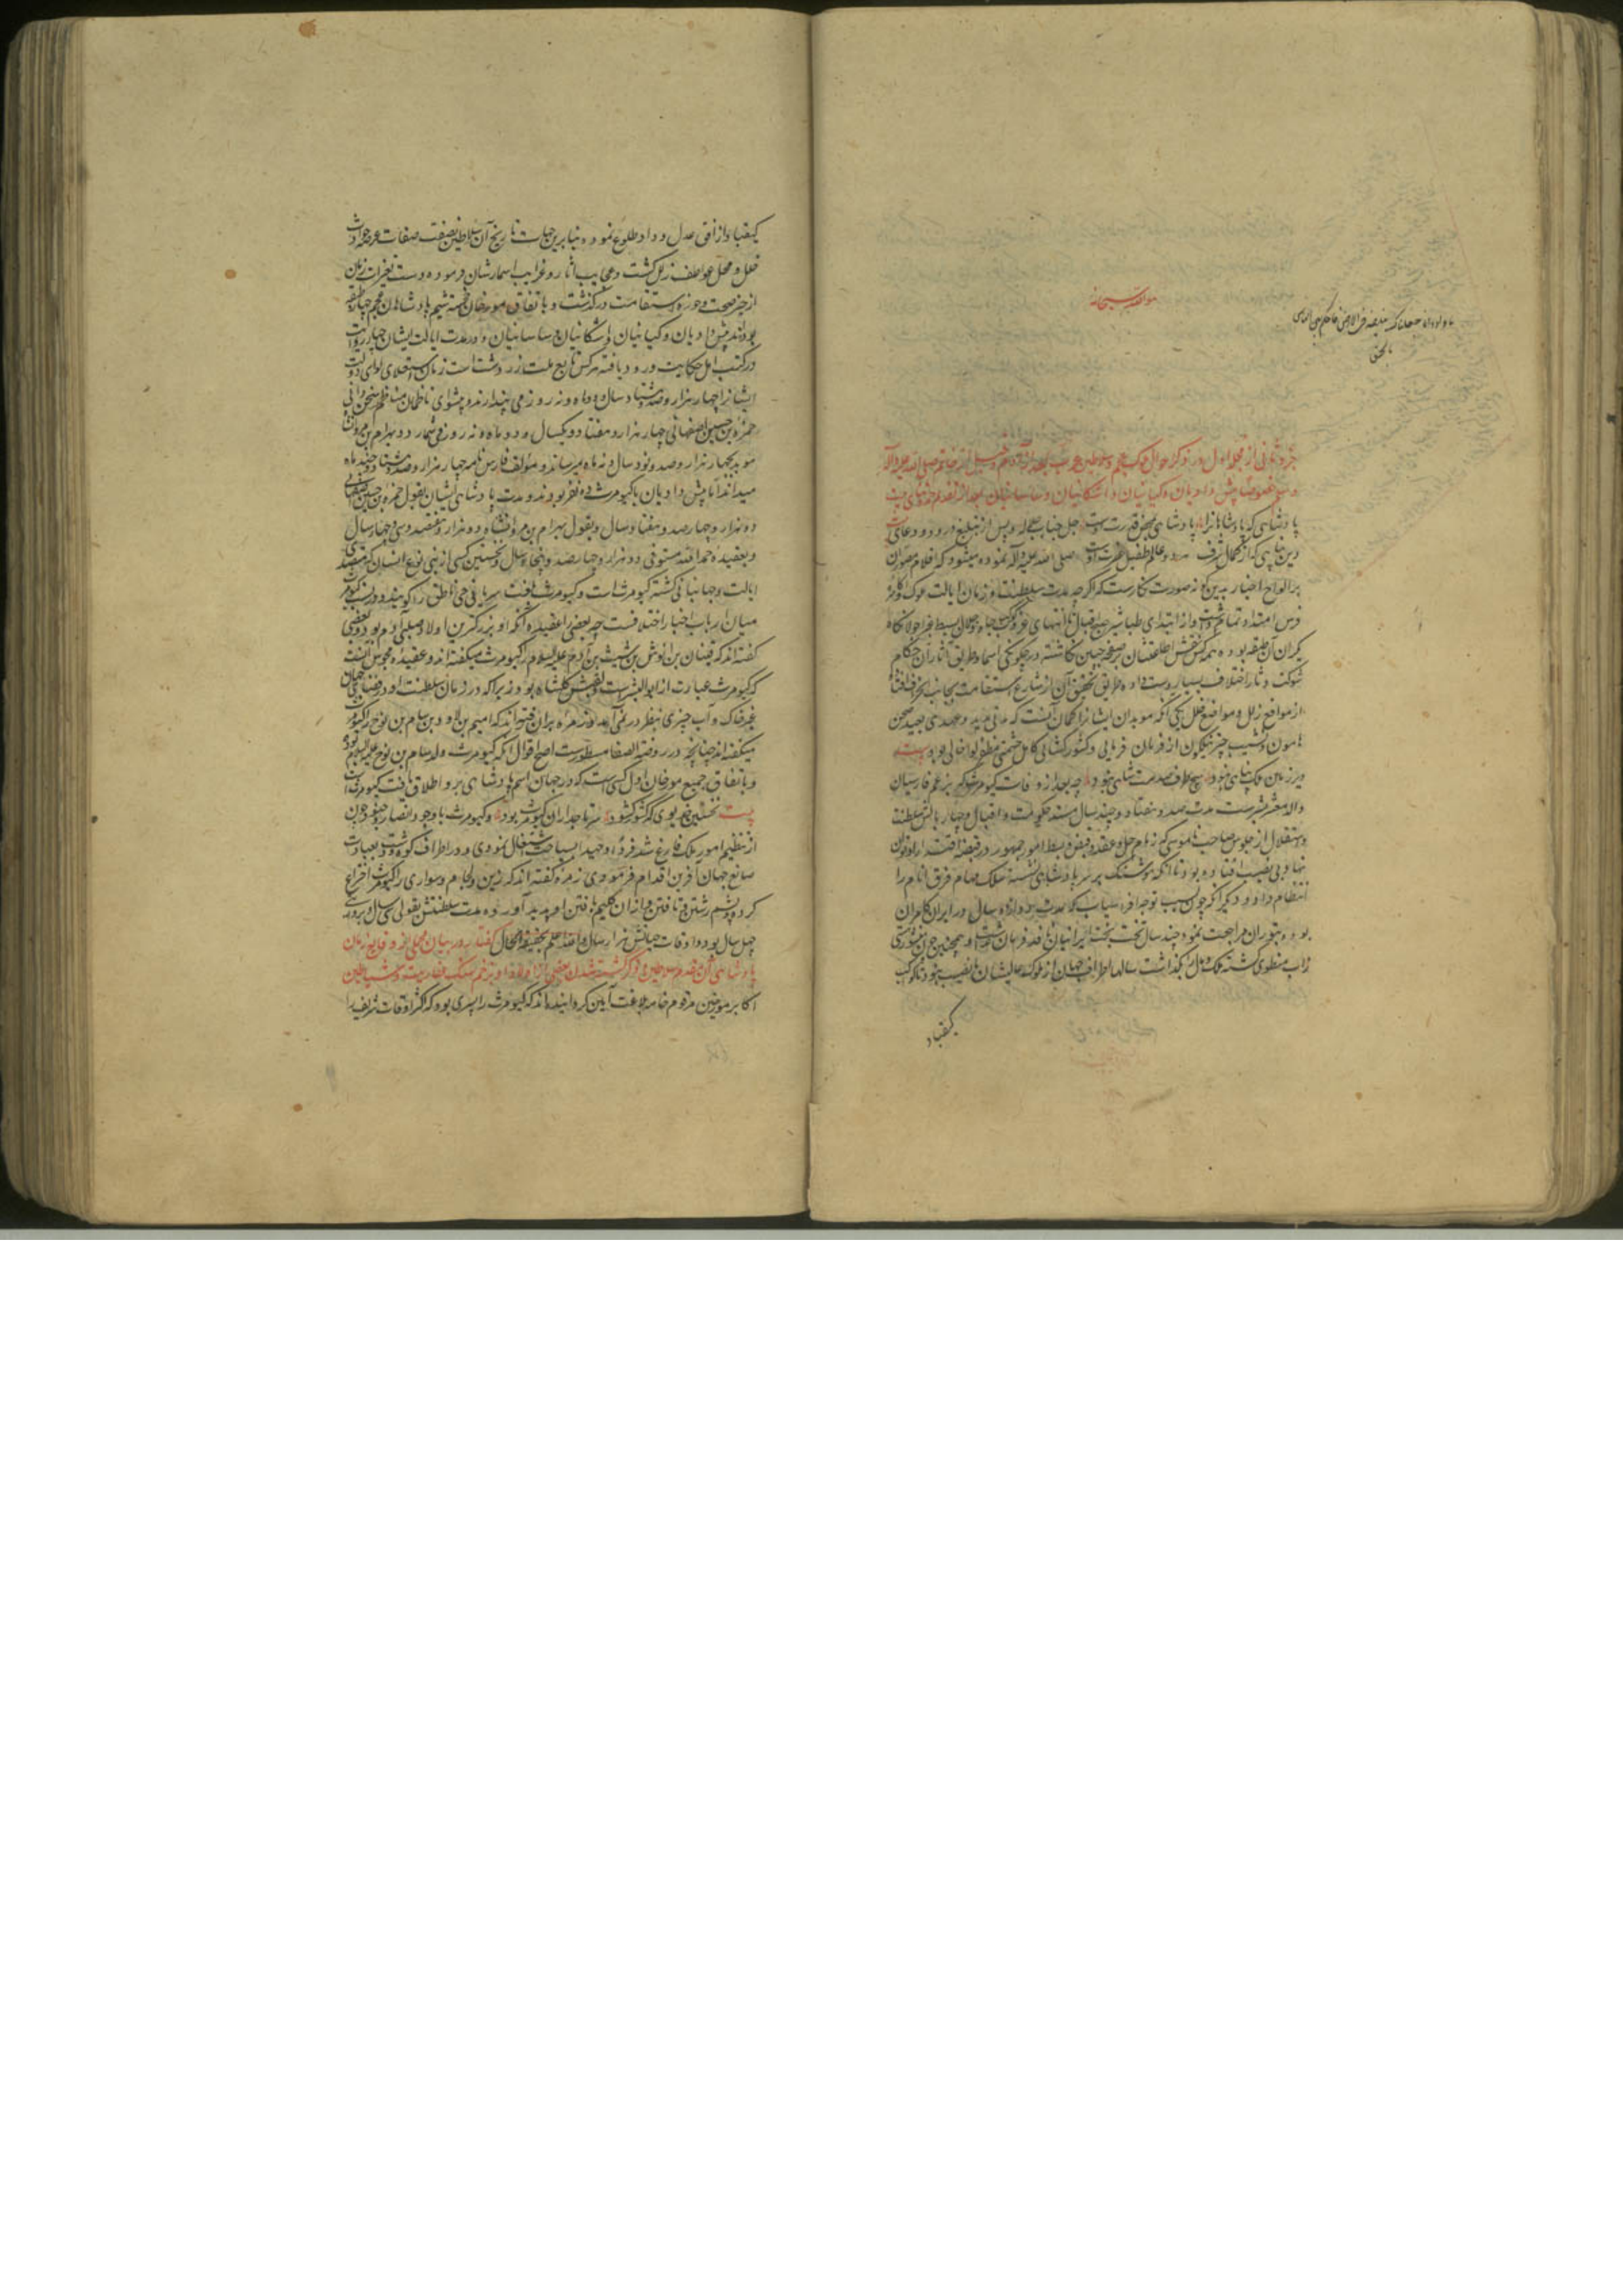 هو الله سبحانه
یا داود انا جعلناک خلیفه فی الارض فاحکم بین الناس
بالحق
جزو ثانی از مجلد اول در ذکر احوال ملوک عجم و سلاطین عرب
پیش دادیان و کیانیان و اشکانیان و ساسانیان بعد از تقدیم
پادشاهی که پادشاهانرا پادشاهی بجز قدرت اوست جل جلاله و پس از تبلیغ درود و دعای
دین پناهی که از کمال شرف هر دو عالم طفیل حضرت اوست صلی الله علیه وآله نموده میشود که اقلام مصوران
بر الواح اخبار بدین گونه صورت نگارست که اگرچه مدت سلطنت و زمان ایالت ملوک اکاسره
فرس امتداد تمام داشت و از ابتدای طباشیر صبح اقبال تا انتهای غروب کوکب جاه و جلال بسیط غبرا جولانگاه
یکران آن طبقه بوده همه کس نقش اطاعتشان بر صفحه جبین نگاشته در چگونگی اسماء و طریق آثار آن حکام
شوکت دثار اختلاف بسیار دست داده و طریق تحقیق آن از شارع استقامت بجانب انحراف افتاده
از مواقع زلل و مواضع خلل یکی آنکه موبدان ایشانرا گمان آنست که مدتی مدید و عهدی بعید صحن
هامون و نشیب چتر نیلگون از فرمان فرمایی و کشورگشایی کامل حشمتی مظفر لوا خالی بود بیت
در زمین ملک پناهی نبود هیچ طرف صدمت شاهی نبود چه بعد از وفات کیومرث که بزعم فارسیان
والد معشر بشرست مدت صد و هفتاد و چند سال مسند حکومت و اقبال و چهار بالش سلطنت
و استقلال از جلوس صاحب ناموسی که زمام حل و عقد و قبض و بسط امور جمهور در قبضه اقتدار او توان
نهاد بی نصیب افتاده بود تا آنکه هوشنگ بر سریر پادشاهی نشسته سلک مهام فرق انام را
انتظام داد و دیگر آنکه چون بسبب توجه افراسیاب که مدت دوازده سال در ایران کامران
بود و بتوران مراجعت نمود چند سال تخت بخت ایرانیان و همچنین چون منشور هستی
زاب منطوی گشته ملک و مال بگذاشت سالها اطراف جهان از ملوک عالیشان بی نصیب بود تا کوکب
کیقباد
کیقباد از افق عدل و داد طلوع نمود و بنابرین جهات تاریخ آن سلاطین نصفت صفات عرضه حوادث
خلل و محل عواطف زلل گشت و عجایب آثار و غرایب اسمارشان فرسوده دست تغیرات زمان
از حیز صحت و حوزه استقامت درگذشت و باتفاق مورخان خجسته شیم پادشاهان عجم چهار طبقه
بوده‌اند پیش دادیان و کیانیان و اشکانیان و ساسانیان و در مدت ایالت ایشان چهار روایت
در کتب اهل حکایت ورود یافته هرکس تابع ملت زردشت است زمان استعلای لوای دولت
ایشانرا چهار هزار و صد و هشتاد سال و دو ماه و نه روز می پندارند و پیشوای ناظمان مناظم سخن دانی
حمزه بن حسین اصفهانی چهار هزار و هفتاد و یکسال و دو ماه و نه روز می شمارد و بهرام بن مردانشاه
موبد بچهار هزار و صد و نود سال و نه ماه میرساند و مؤلف فارس نامه چهار هزار و صد و هشتاد و چند ماه
میداند اما پیش دادیان با کیومرث ده نفر بودند و مدت پادشاهی ایشان بقول حمزه بن حسین اصفهانی
دو هزار و چهارصد و هفتاد سال و بقول بهرام بن مردانشاه دو هزار و هفتصد و سی و چهار سال
و بعقیده حمدالله مستوفی دو هزار و چهارصد و پنجاه سال و نخستین کسی از بنی نوع انسان که متصدی
ایالت و جهانبانی گشته کیومرث است و کیومرث بلغت سریانی حی ناطق را گویند و در نسب کیومرث
میان ارباب اخبار اختلافست چه بعضی را عقیده آنکه او بزرگترین اولاد صلبی آدم بود و بعضی
گفته‌اند که قینان بن انوش بن شیث بن آدم علیه السلام را کیومرث میگفته‌اند و عقیده مجوس آنست
که کیومرث عبارت از ابوالبشرست و لقبش گلشاه بود زیرا که در زمان سلطنت او در فضای جهان
بغیر خاک و آب چیزی بنظر در نمی آمد و زمره بران رفته‌اند که امیم بن لاود بن سام بن نوح را کیومرث
میگفته‌اند چنانچه در روضة الصفا مسطورست اصح اقوال آنکه کیومرث ولد سام بن نوح علیه السلام بود
و باتفاق جمیع مورخان اول کسی است که در جهان اسم پادشاهی برو اطلاق یافت کیومرث است
بیت نخستین خدیوی که کشور گشود سر تاجداران کیومرث بود و کیومرث با وجود انصار چون
از تنظیم امور ملک فارغ شد فرداً وحیداً بسیاحت اشتغال نمودی و در اطراف کوه و دشت بعبادت
صانع جهان آفرین اقدام فرمودی زمره گفته‌اند که زین و لجام و سواری را کیومرث اختراع
کرده و پشم رشتن و تافتن و ازان گلیم بافتن او پدید آورده مدت سلطنتش بقولی سی سال و بروایتی
چهل سال بود و اوقات حیاتش هزار سال و الله اعلم بحقیقة الحال گفتار در بیان مجملی از وقایع زمان
پادشاهی آن مقدم سلاطین و ذکر کشته شدن بعضی از اولاد او بزخم سنگ عفاریت و شیاطین
اکابر مورخین مرقوم خامه بلاغت آیین گردانیده‌اند که کیومرث را پسری بود که اکثر اوقات شریف را